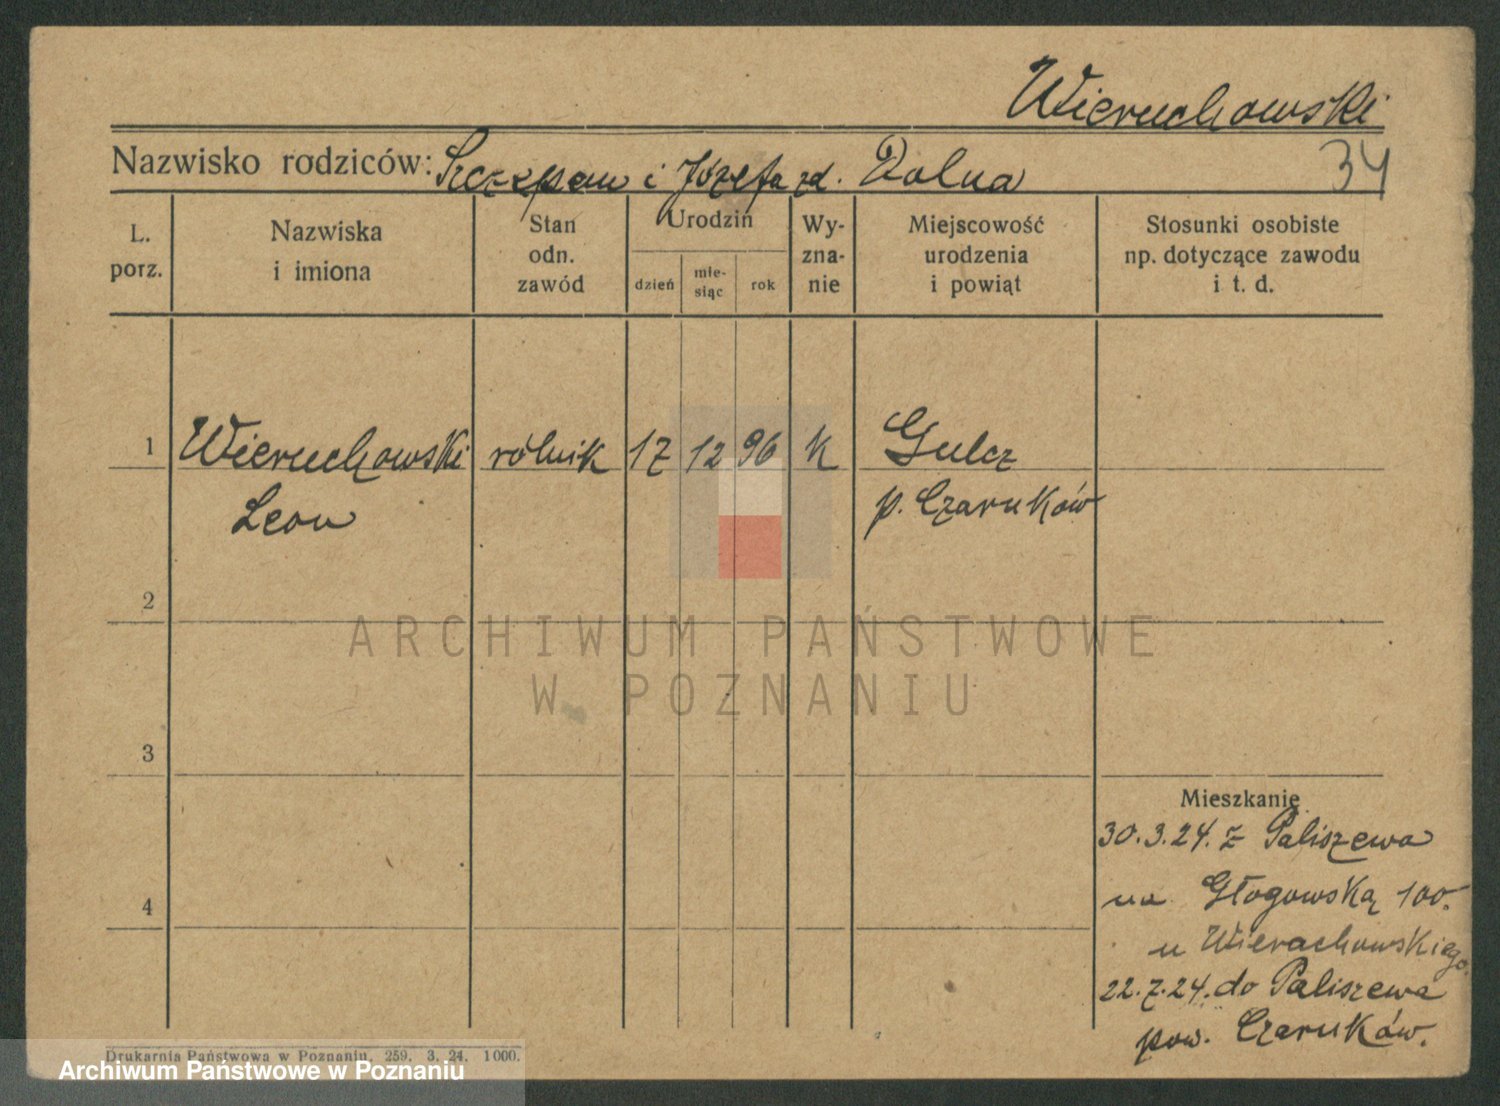 Wieruchowski
Nazwisko rodziców: Szczepan i Józefa zd. Dolna
34
L. porz.
Nazwiska i imiona
Stan odn. zawód
Urodzin
dzień
mie-siąc
rok
Wy-zna-nie
Miejscowość urodzenia i powiąt
Stosunki osobiste np. dotyczące zawodu i t. d.
1 Wieruchowski rolnik 17 12 96 k Gulcz
Leon p. Czarnków
2
ARCHIWUM PAŃSTWOWE
W POZNANIU
3
Mieszkanie
30.3.24. z Paliszewa
4
na Głogowską 100.
u Wierachowskiego
22.7.24. do Paliszewa
pow. Czarnków.
Drukarnia Państwowa w Poznaniu, 259. 3. 24. 1000.
Archiwum Państwowe w Poznaniu